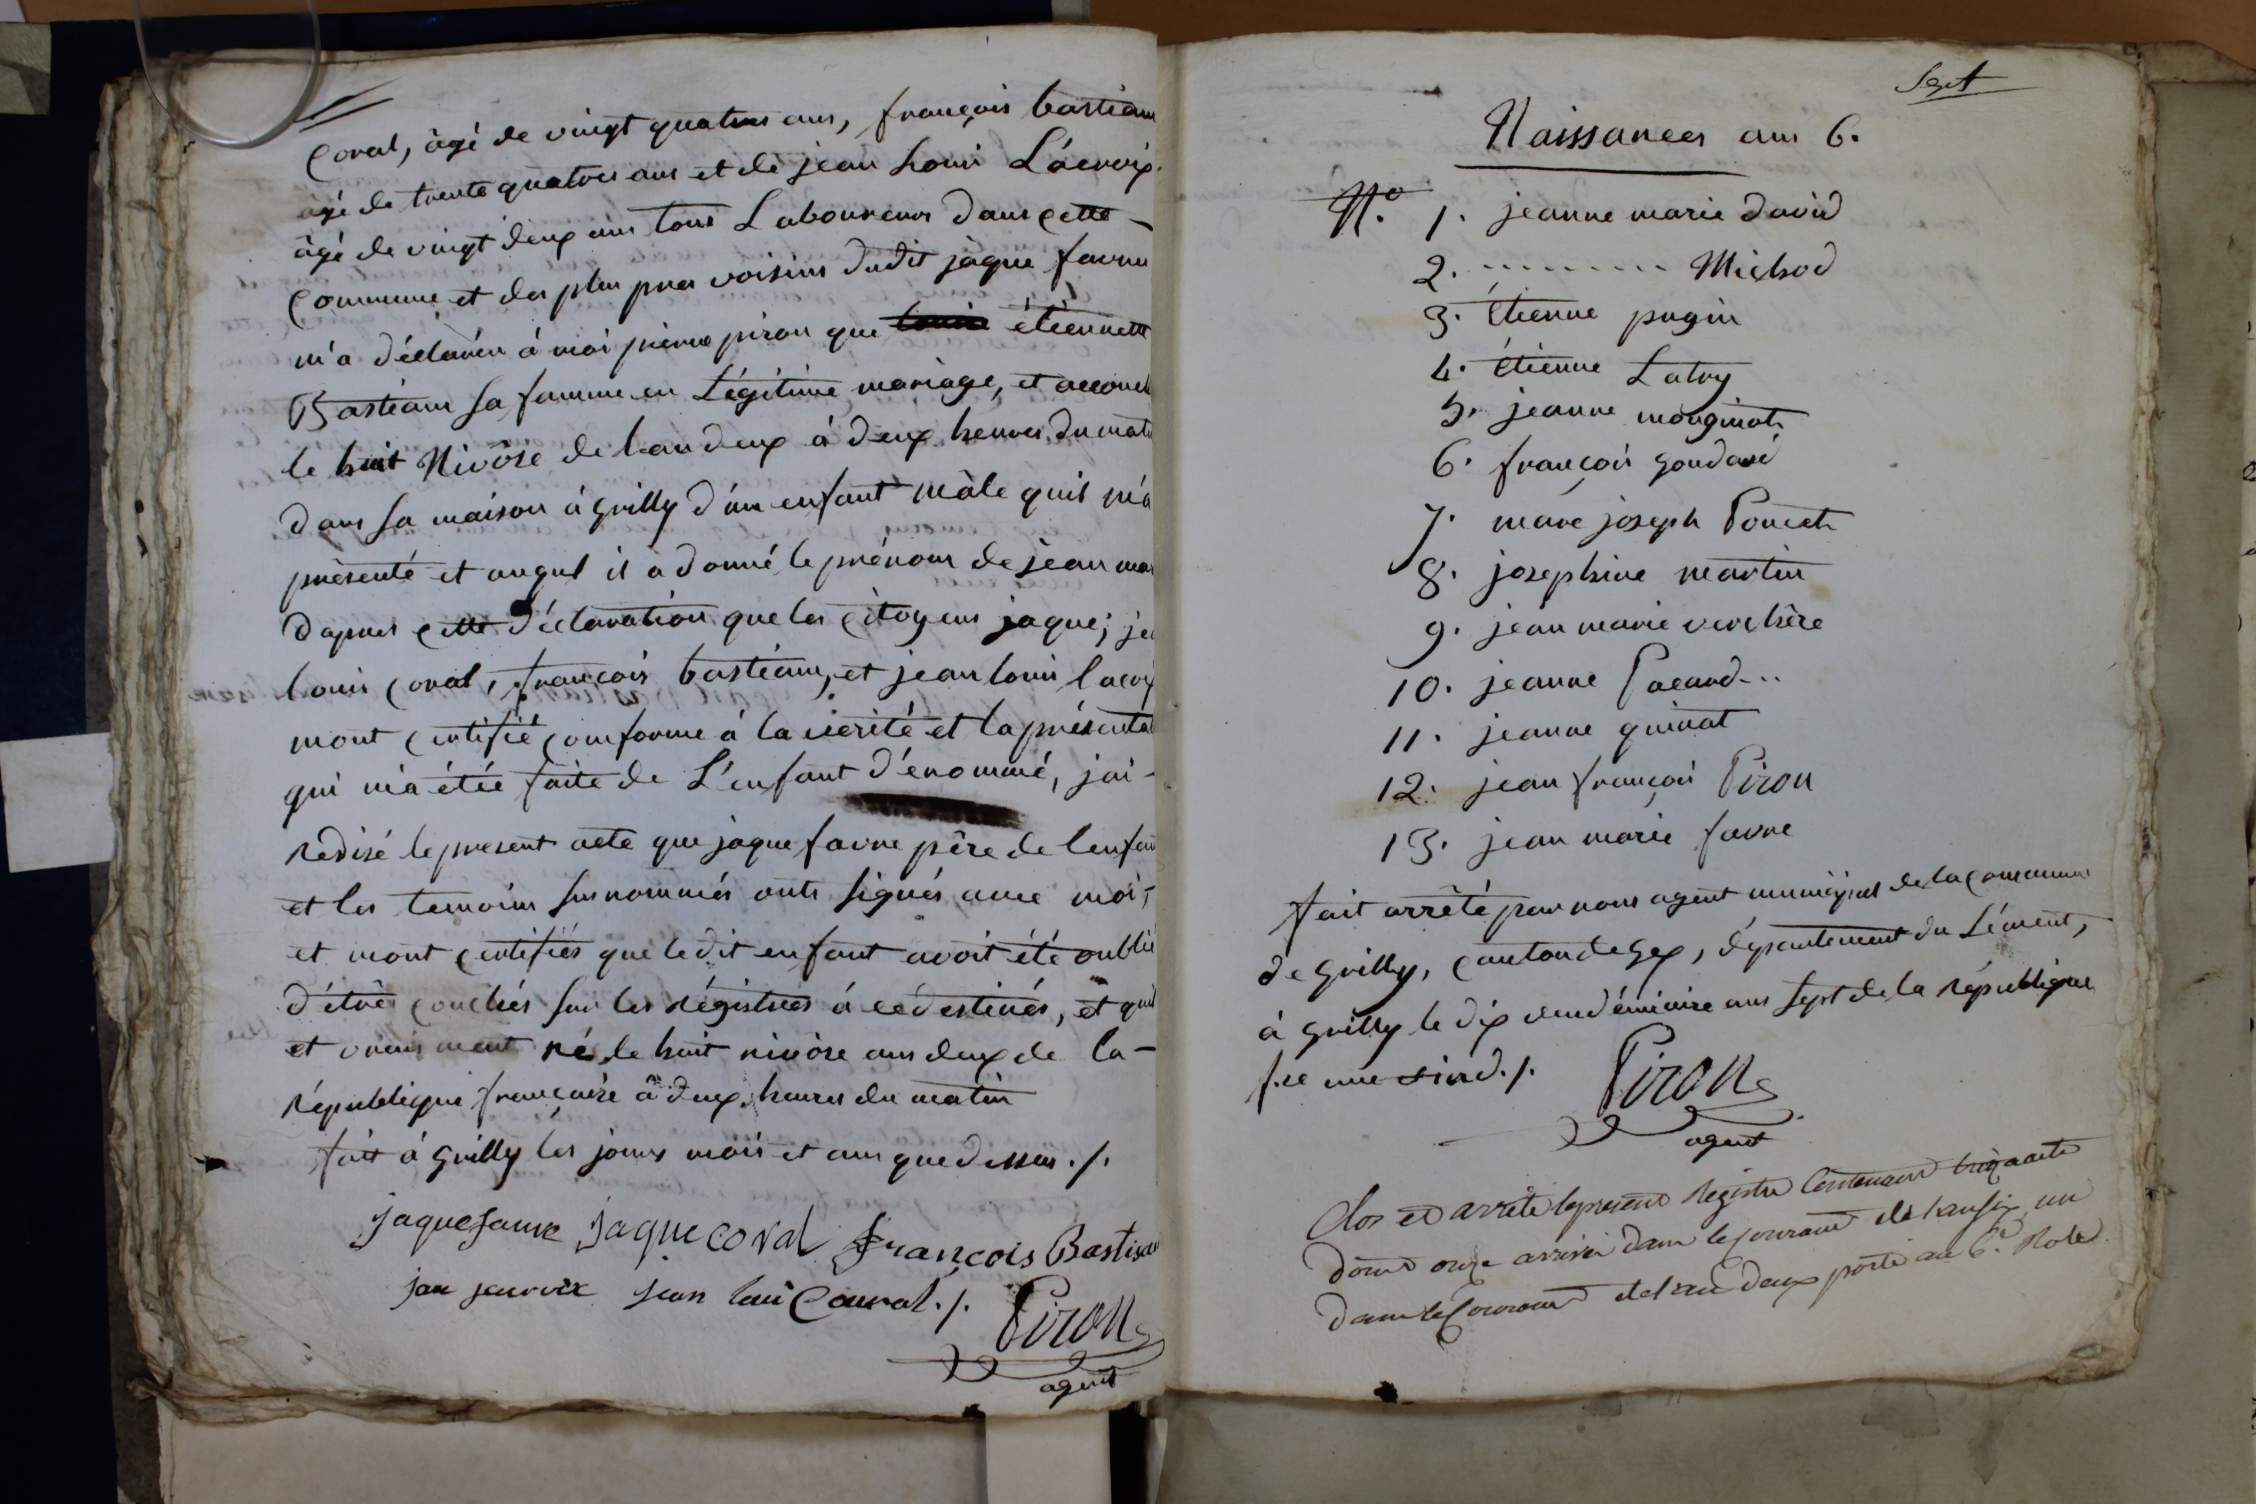 Coral, âgé de vingt quatres ans, françois bastian
âgé de trente quatres ans et de jean Louis Lácroix
âgé de vingt deux ans tous Laboureurs dans cette
Commune et des plus pres voisins dudit jàque favre
m'a déclarér á moi pierre piron que étiennette
Bastiann sa famme en Légitime mariage, et accouch
le huit Nivôse de l'an deux á deux heures du mati
dans sa maison á grilly d'un enfant mâle quil m'a
présenté et auquel il a donné le prénom de jean mar
dapres cette déclaration que les Citoyens jaque; je
louis Coral, françois bastiann, et jean louis lacroi
mont Certifié Conforme á la vérité et la présentat
qui m'a étée faite de L'enfant d'énommé, jai
rédisé le present acte que jaque favre pêre de lenfan
et les temoins susnommés onts signés avec moi,
et mont Certifiés que le dit enfant avoit été oublié
d'étre Couchés sur les régistres á ce destinés, et quil
et vraiment né le huit nivôse ans deux de la
république françoise â deux heures du matin
fait á grilly les jours mois et ans que dessus ./.
jaque favre jaque coral françois Bastian
jean Louis Coural ./. Piron
agent
Sept
Naissances ans 6.
N.o 1. jeanne marie david
2. ---------- Michod
3. étienne pugin
4. étienne Latry
5. jeanne monginot
6. françois goudard
7. marc joseph Poncet
8. josephine martin
9. jean marie verchère
10. jeanne Pacard...
11. jeanne guinat
12. jean françois Piron
13. jean marie favre
fait arrêté par nous agent municipal de la Commune
de grilly, Canton de gex, départlement du Lément,
á grilly le dix vendémiaire ans sept de la république
f.se une et ind. /. Piron
agent
Clos et arrêté le present Registre Contenant acte
dont onze arrivés dans le Courant de l'an six, un
dans le Courant de l'an deux porté au 6.e Role